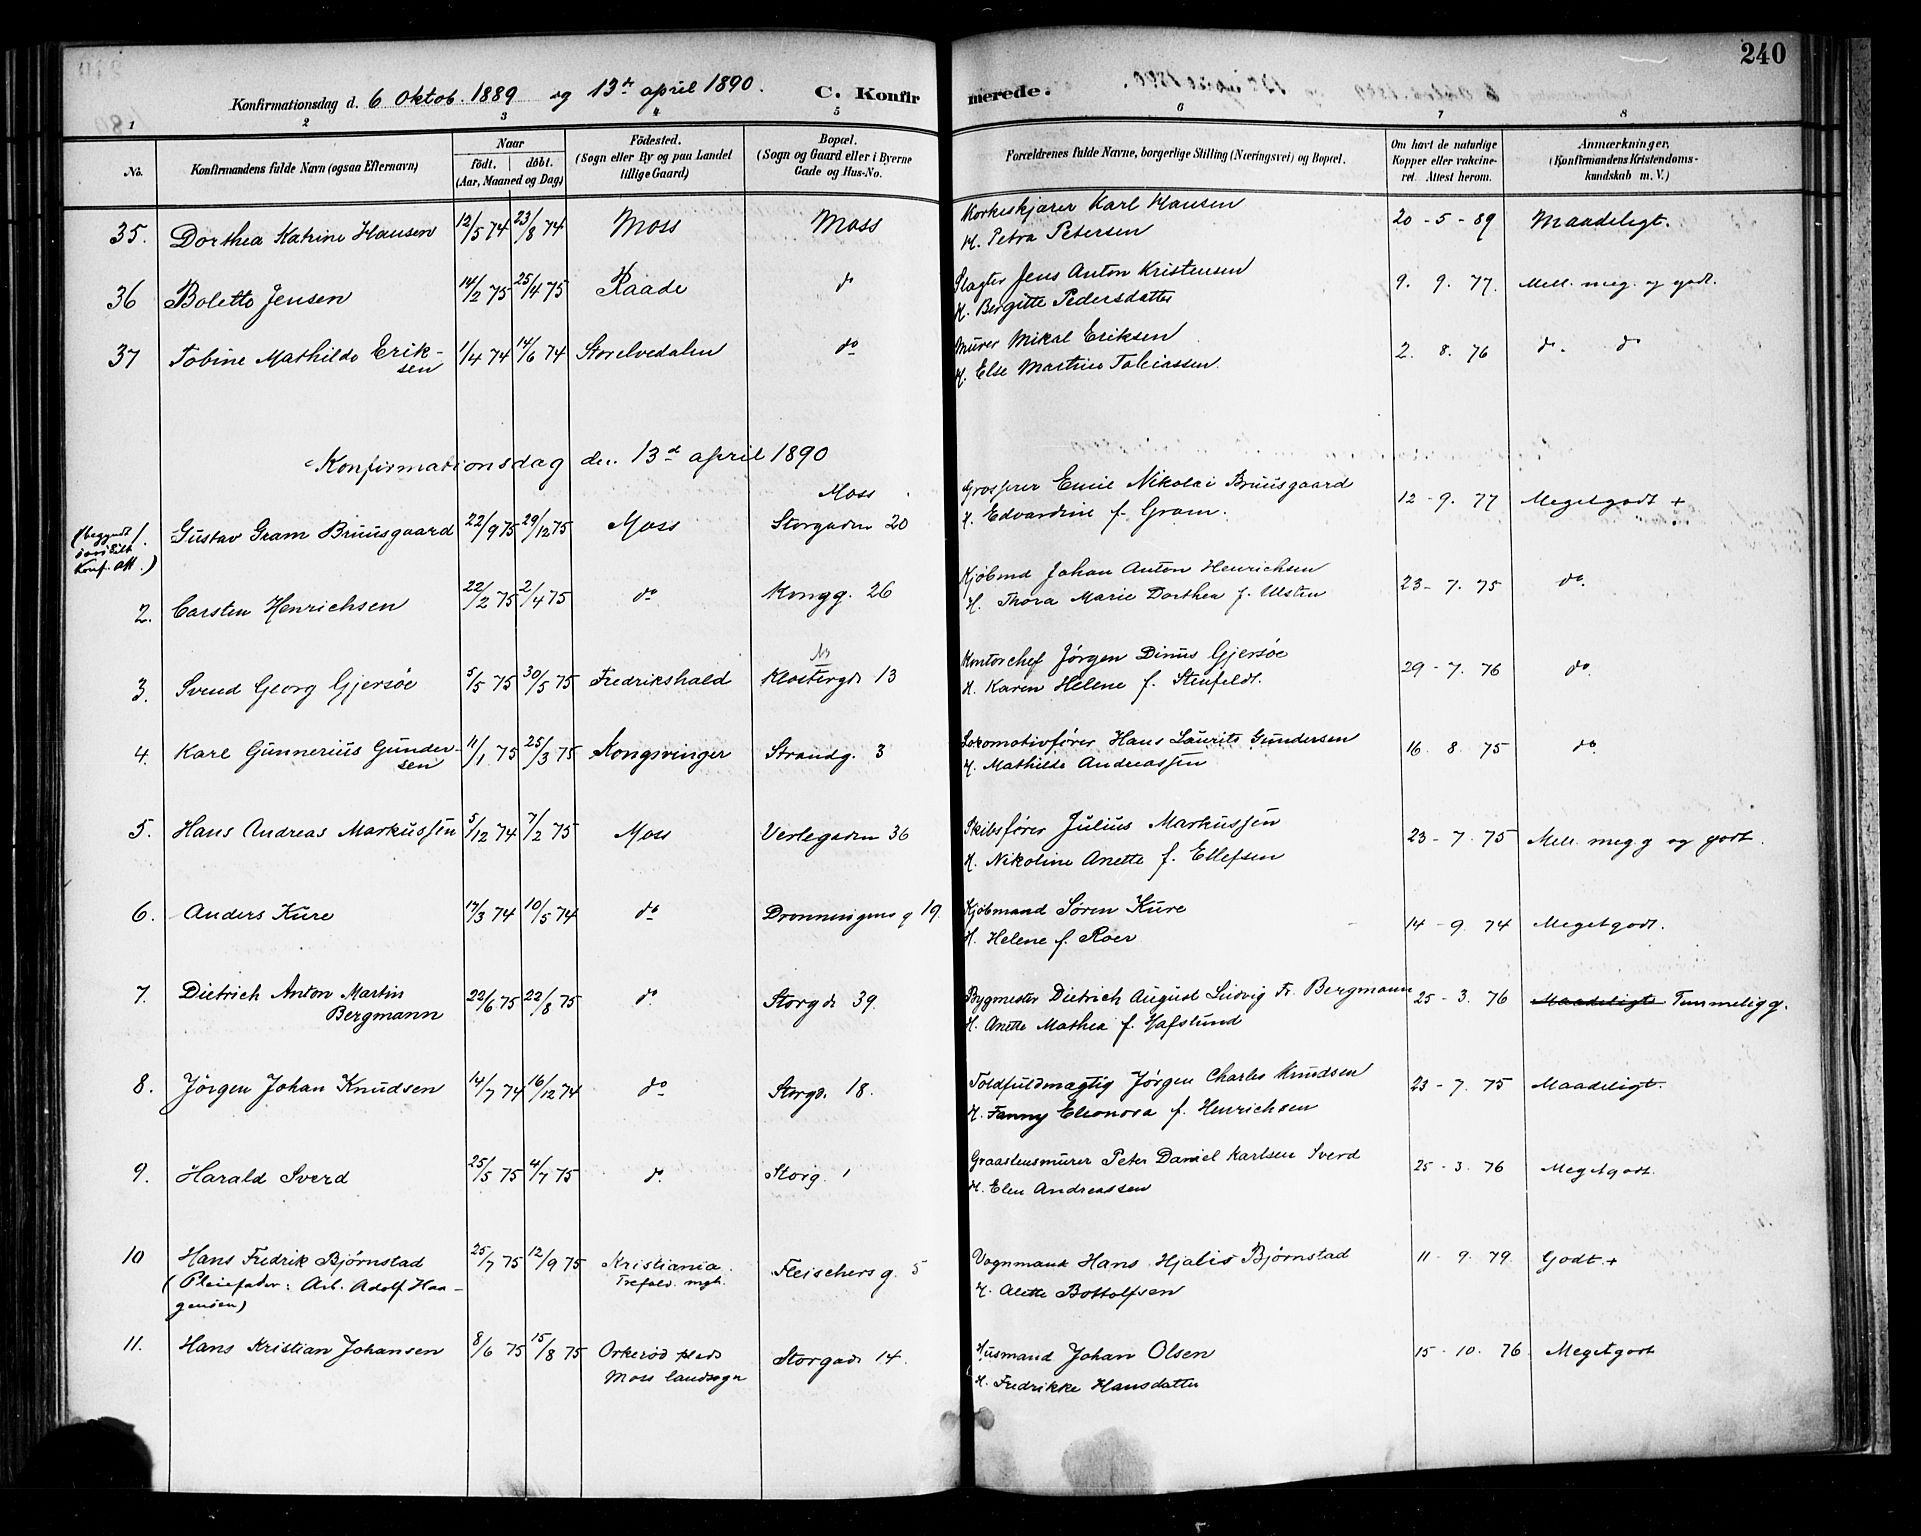 240
Konfirmationsdag d. 6 Oktob. 1889 og 13de april 1890. C. Konfirmerede.
1 2 3 4 5 6 7 8
No. Konfirmandens fulde Navn (ogsaa Efternavn) Naar födt. döbt. (Aar, Maaned og Dag) Födested. (Sogn eller By og paa Landet tillige Gaard) Bopæl. (Sogn og Gaard eller i Byerne Gade og Hus-No. Forældrenes fulde Navne, borgerlige Stilling (Næringsvei) og Bopæl. Om havt de naturlige Kopper eller vakcineret. Attest herom. Anmærkninger. (Konfirmandens Kristendomskundskab m. V.)
35. Dorthea Katrine Hansen 12/5 74 23/8 74 Moss Moss Korkeskjærer Karl Hansen 20 - 5 - 89 Maadeligt.
H. Petra Petersen
36 Bolette Jensen 14/2 75 25/4 75 Raade do Slagter Jens Anton Kristensen 9. 9. 77. Mell. meg. og godt.
H. Bergitte Pedersdatter
37 Tobine Mathilde Erik- 1/4 74 14/6 74 Storelvedalen do Murer Mikal Eriksen 2. 8. 76 do do
sen H. Else Martine Tobiassen.
Konfirmationsdag den 13de april 1890
Moss Grosserer Emil Nikolai Bruusgaard 12 - 9. 77 Megetgodt +
(begyndt 1. Gustav Gram Bruusgaard 22/9 75 29/12 75 Moss Storgaden 20 H. Edvardine f. Gram.
Konf. att.)
2. Carsten Henrichsen 22/2 75 2/4 75 do Kongg. 26 Kjøbmd Johan Anton Henrichsen 23 - 7. 75 do.
H. Thora Marie Dorthea f. Ulsten
3. Svend Georg Gjersöe 5/5 75 30/5 75 Fredrikshald Klostergd. 13 Kontorchef Jørgen Dinus Gjersöe 29 - 7. 76 do.
H. Karen Helene f. Stenfeldt.
4. Karl Gunnerius Gunder- 11/1 75 25/3 75 Kongsvinger Strandg. 3 Lokomotivfører Hans Laurits Gundersen 16. 8. 75 do
sen H. Mathilde Andreassen
5. Hans Andreas Markussen 5/12 74 7/2 75 Moss Verlegaden 36 Skibsfører Julius Markussen 23 - 7. 75 Mell. meg. g og godt.
H. Nikoline Anette f. Ellefsen
6. Anders Kure 17/3 74 10/5 74 do Dronningens g 19. Kjøbmand Søren Kure 14 - 9. 74 Megetgodt.
H. Helene f. Roer
7. Dietrich Anton Martin 22/6 75 22/8 75 do Storgd. 39. Bygmester Dietrich August Ludvig Fr. Bergmann 25 - 3. 76 Maadeligt Temmelig g.
Bergmann H. Anette Mathea f. Hafslund
8. Jörgen Johan Knudsen 14/7 74 16/12 74 do Storgd. 18. Toldfuldmægtig Jörgen Charles Knudsen 23 - 7. 75 Maadeligt.
H. Fanny Eleonora f. Henrichsen
9. Harald Sverd 25/5 75 4/7 75 do Storg. 1 Graastensmurer Peter Daniel Karlsen Sverd 25 - 3. 76 Megetgodt.
H. Elen Andreassen
10 Hans Fredrik Bjørnstad 25/7 75 12/9 75 Kristiania. Fleischers g. 5 Vognmand Hans Hjalis Bjørnstad 11 - 9. 79 Godt. +
(Pleiefader: Arb. Adolf Haa- Trefold. mgh. H. Alette Bottolfsen
gensen)
11. Hans Kristian Johansen 8/6 75 15/8 75 Orkerød plads Storgade 14. Husmand Johan Olsen 15 - 10. 76 Megetgodt
Moss landsogn H. Fredrikke Hansdatter